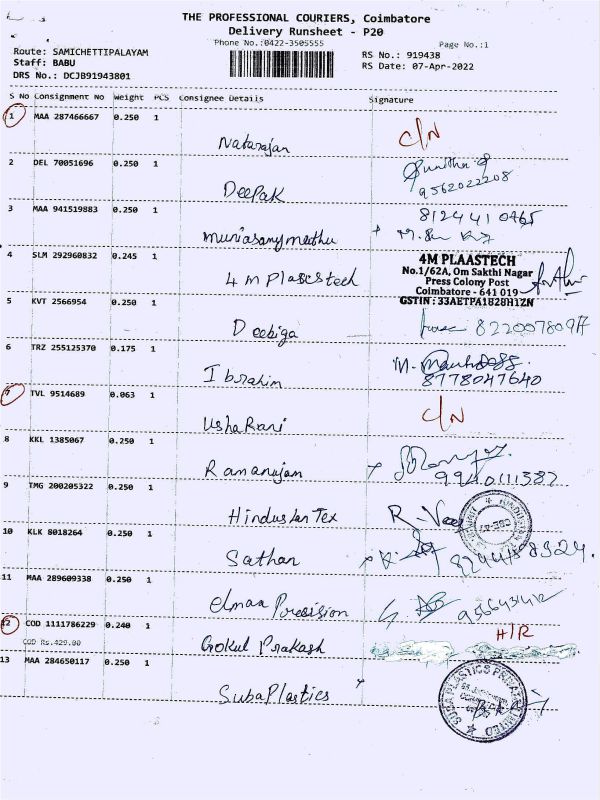 THE PROFESSIONAL COURIERS, Coimbatore
Delivery Runsheet - P20
Phone No.:0422-3505555
Page No.:1
Route: SAMICHETTIPALAYAM
Staff: BABU
DRS No.: DCJB91943801
RS No.: 919438
RS Date: 07-Apr-2022
S No Consignment No Weight PCS Consignee Details Signature
1 MAA 287466667 0.250 1
Natarajan C/N
2 DEL 70051696 0.250 1
Deepak 9562022208
3 MAA 941519883 0.250 1
8124410465
muniasamymuthu
4 SLM 292960832 0.245 1
4 m Plasstech
4M PLAASTECH
No.1/62A, Om Sakthi Nagar
Press Colony Post
Coimbatore - 641 019
GSTIN : 33AETPA1828H1ZN
5 KVT 2566954 0.250 1
Deebiga
6 TRZ 255125370 0.175 1
Ibrahim 8778047640
7 TVL 9514689 0.063 1
Usha Rani C/N
8 KKL 1385067 0.250 1
Ramanujam
9 TMG 200205322 0.250 1
Hindustan Tex
10 KLK 8018264 0.250 1
Sathan
11 MAA 289609338 0.250 1
elmaa Precision
12 COD 1111786229 0.240 1
COD Rs.429.00
Gokul Prakash H/R
13 MAA 284650117 0.250 1
Suba Plastics
SUBA PLASTICS PRIVATE LIMITED